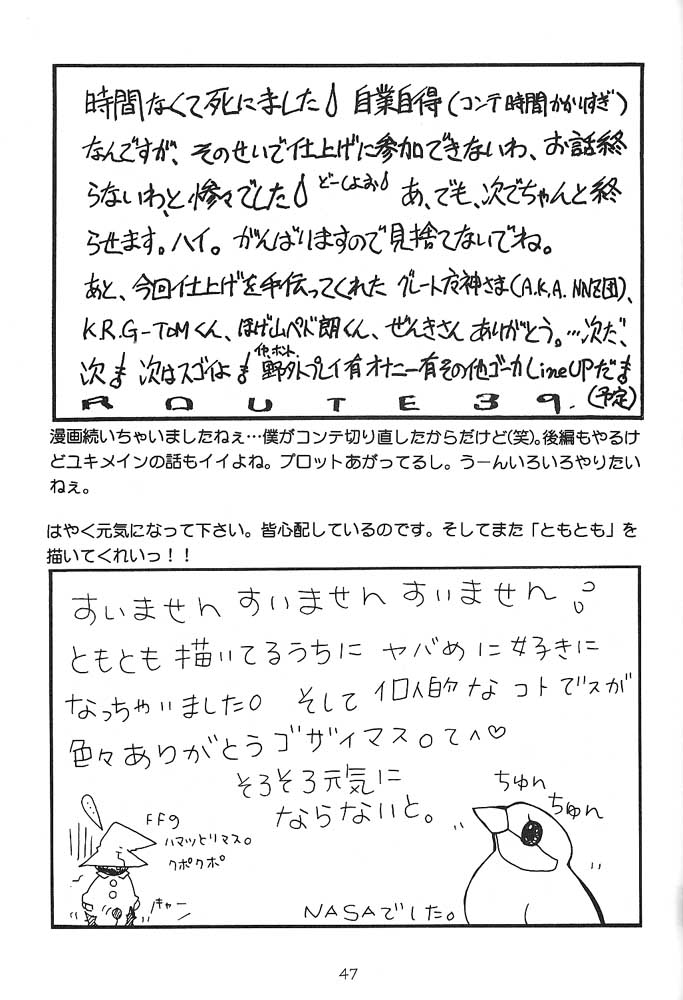 時間なくて死にました 自業自得(コンテ時間かかりすぎ)
なんですが、そのせいで仕上げに参加できないわ、お話終
らないわ、と惨々でした どーしよお あ、でも、次でちゃんと終
らせます。ハイ。がんばりますので見捨てないでね。
あと、今回仕上げを手伝ってくれた グレート神さま(A.K.A. NNZ団)、
K.R.G-TOMくん、ほげ山ペド朗くん、ぜんきさん ありがとう。…次だ、
次も 次はスゴイよ
野外プレイ有オナニー有その他ゴーカLineUPだ
(予定)
ROUTE39.
漫画続いちゃいましたねぇ…僕がコンテ切り直したからだけど(笑)。後編もやるけ
どユキメインの話もイイよね。プロットあがってるし。うーんいろいろやりたい
ねぇ。
はやく元気になって下さい。皆心配しているのです。そしてまた「ともとも」を
描いてくれいっ!!
すいません すいません すいません
ともとも描いてるうちに ヤバめに好きに
なっちゃいました。 そして 個人的な コトですが
色々ありがとうゴザイマス。て^♡
そろそろ元気に
ならないと。
FFの
ハマッとリマス。
クポクポ
キャー
ちゅん
ちゅん
NASAでした。
47